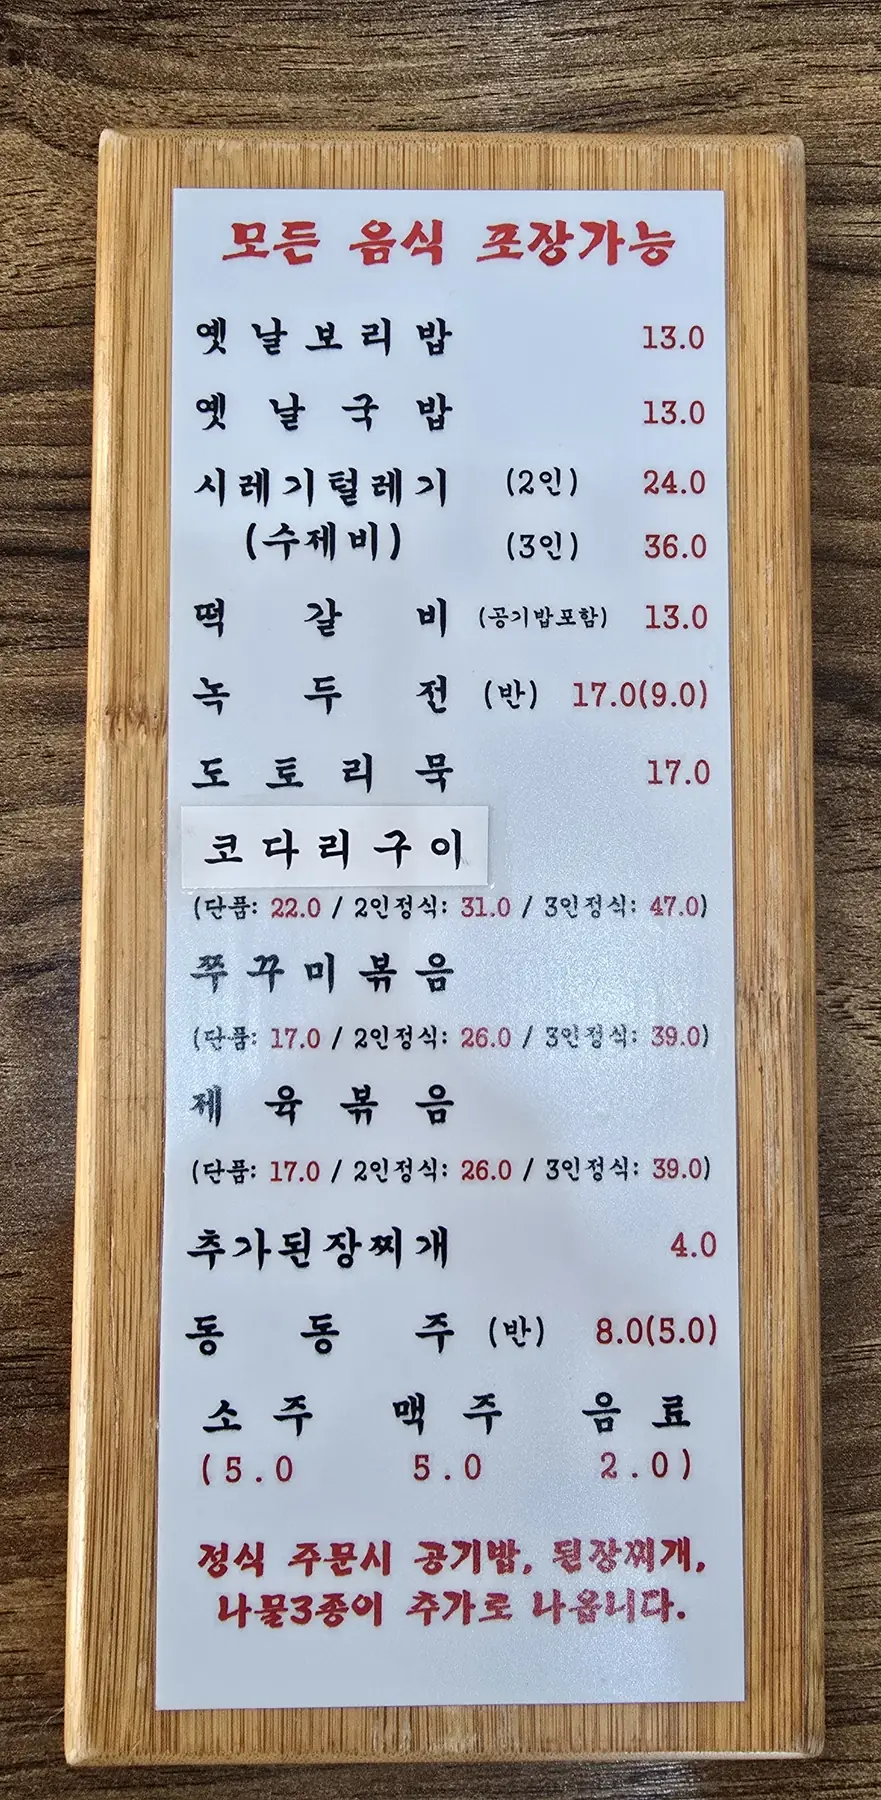 모든 음식 포장가능
옛날보리밥 13.0
옛날국밥 13.0
시레기털레기 (2인) 24.0
(수제비) (3인) 36.0
떡갈비 (공기밥포함) 13.0
녹두전 (반) 17.0(9.0)
도토리묵 17.0
코다리구이
(단품: 22.0 / 2인정식: 31.0 / 3인정식: 47.0)
쭈꾸미볶음
(단품: 17.0 / 2인정식: 26.0 / 3인정식: 39.0)
제육볶음
(단품: 17.0 / 2인정식: 26.0 / 3인정식: 39.0)
추가된장찌개 4.0
동동주 (반) 8.0(5.0)
소주 맥주 음료
(5.0 5.0 2.0)
정식 주문시 공기밥, 된장찌개,
나물3종이 추가로 나옵니다.